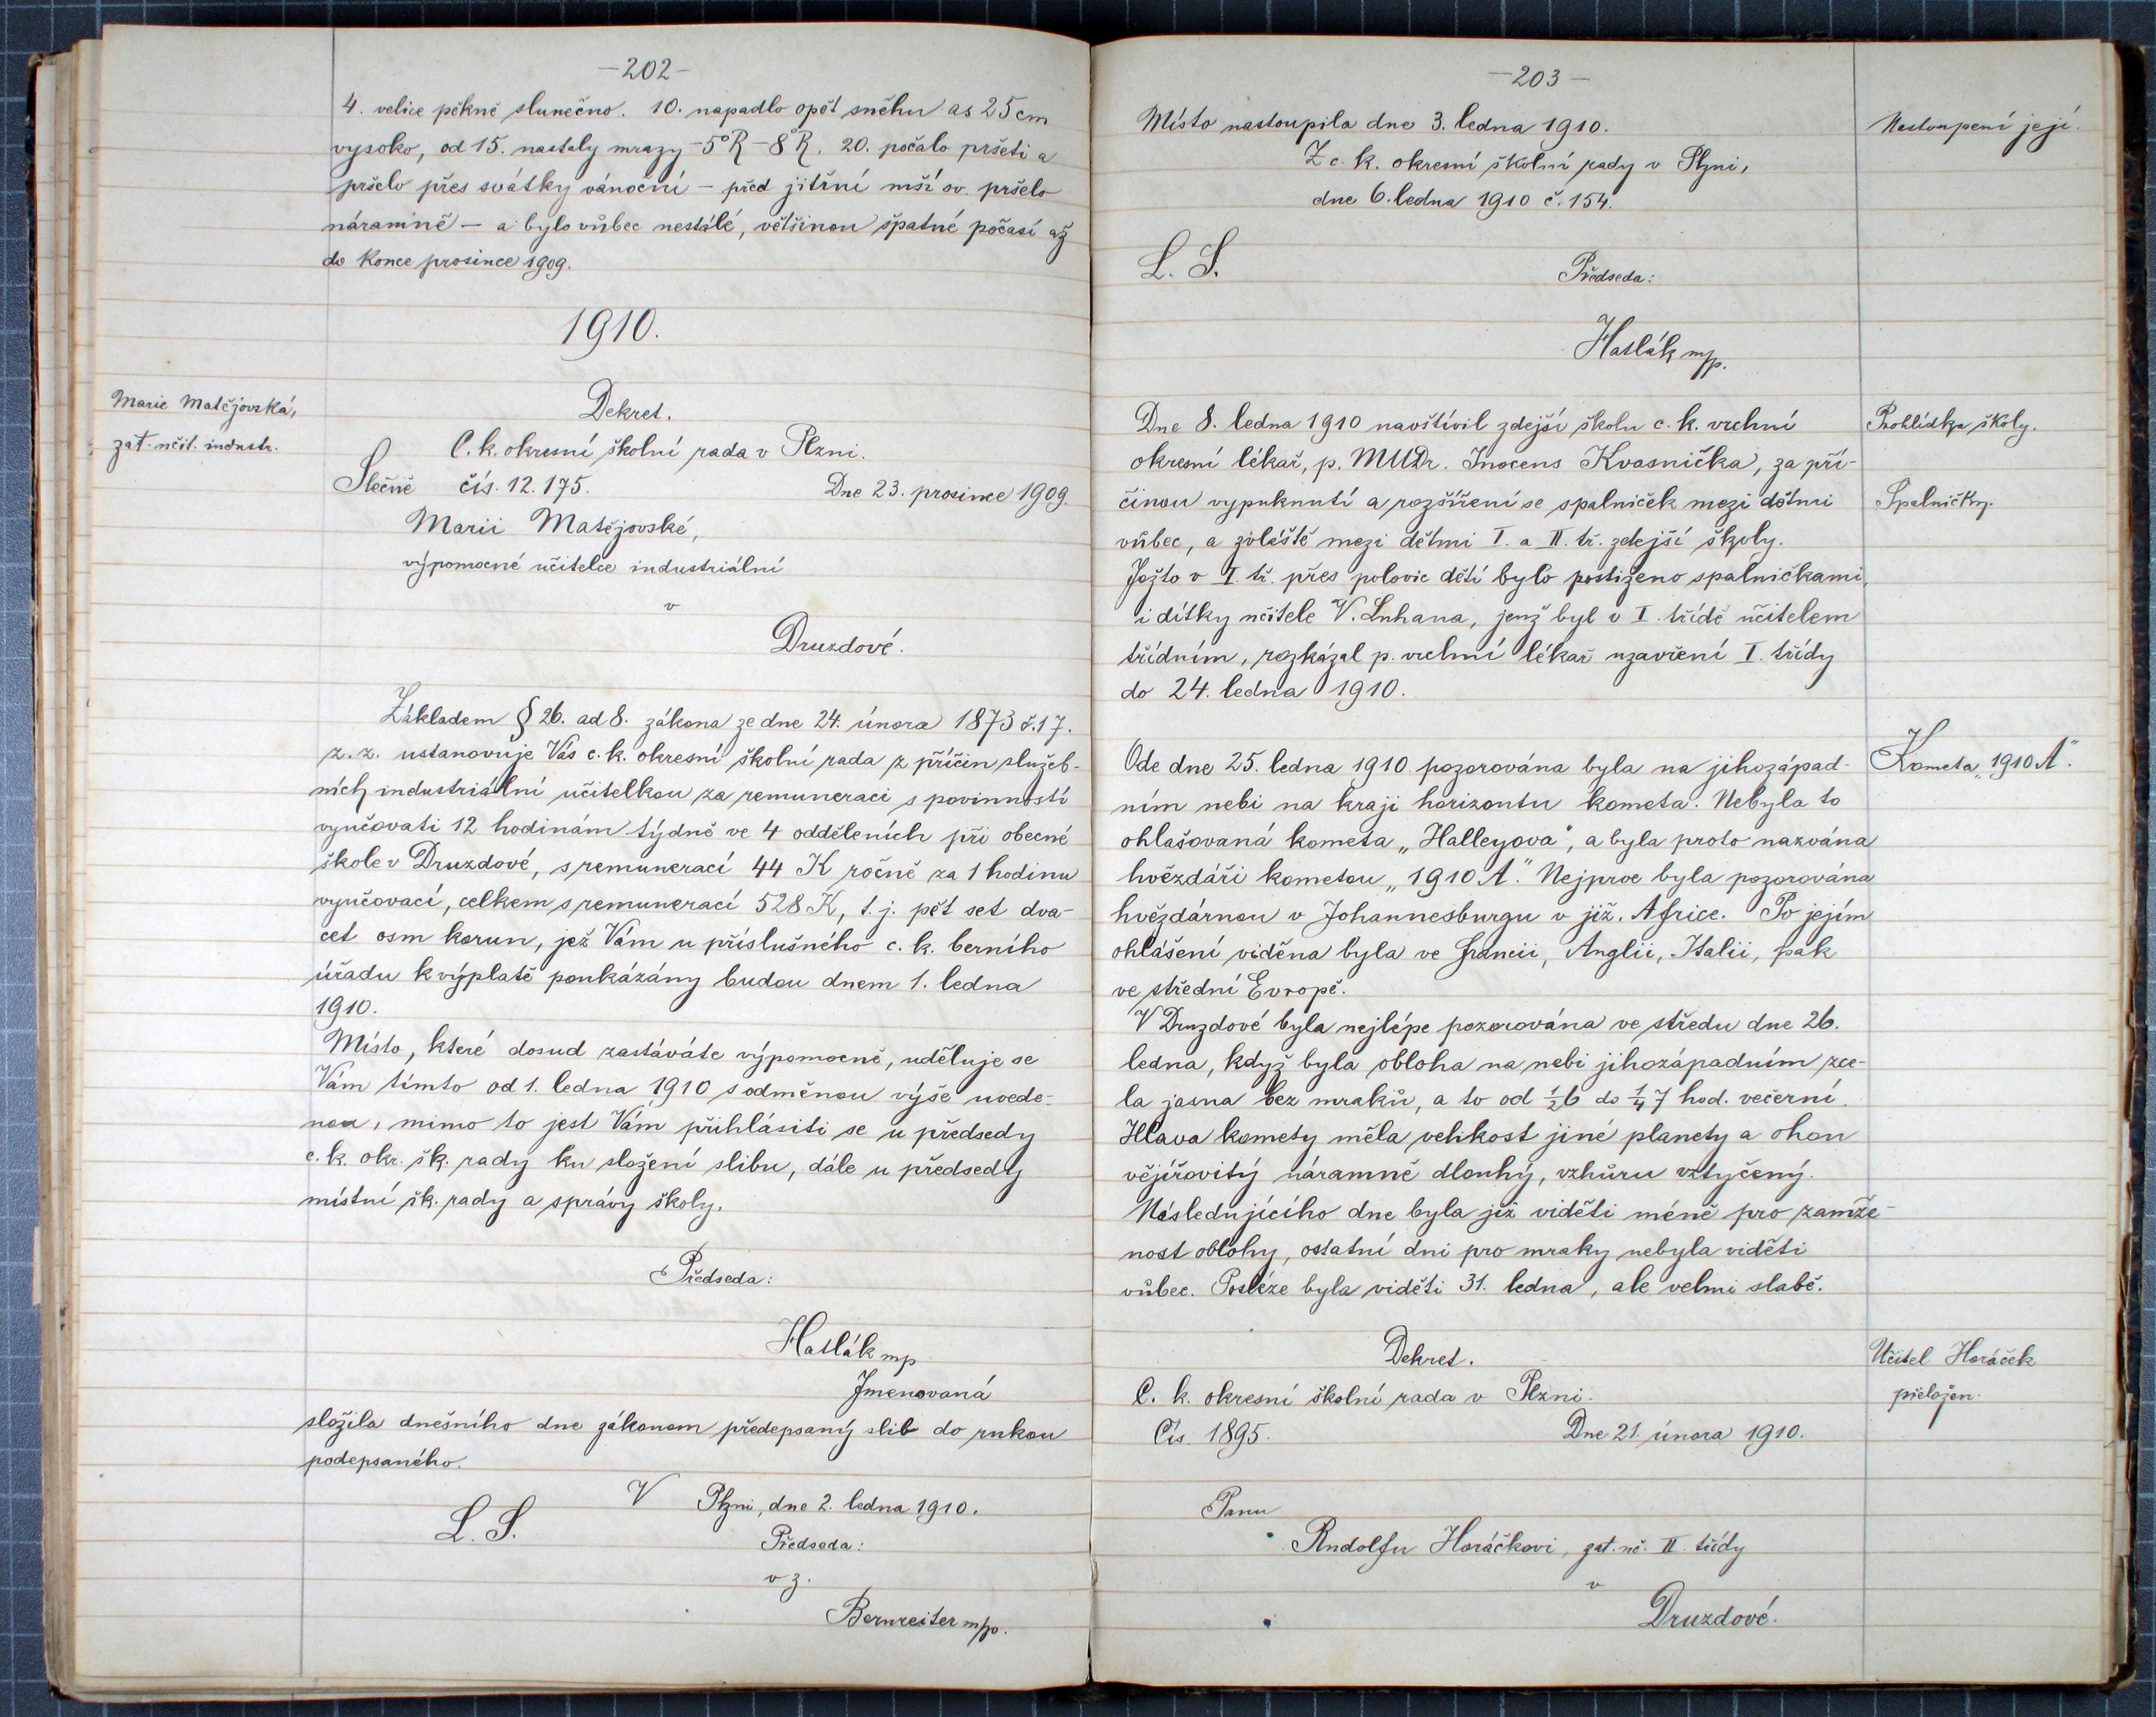 -202-
4. velice pěkně slunečno. 10. napadlo opět sněhu as 25 cm
vysoko, od 15. nastaly mrazy -5°R -8°R. 20. počalo pršeti a
pršelo přes svátky vánoční - před jitřní mší sv. pršelo
náramně - a bylo vůbec nestálé, většinou špatné počasí až
do konce prosince 1909.
1910.
Marie Matějovská,
zat. učit. industr.
Dekret.
C. k. okresní školní rada v Plzni.
Slečně čís. 12.175. Dne 23. prosince 1909.
Marii Matějovské,
výpomocné učitelce industriální
v
Druzdové.
Základem § 26. ad 8. zákona ze dne 24. února 1873 č. 17.
z. z. ustanovuje Vás c. k. okresní školní rada z příčin služeb-
ních industriální učitelkou za remuneraci s povinností
vyučovati 12 hodinám týdně ve 4 odděleních při obecné
škole v Druzdové, s remunerací 44 K ročně za 1 hodinu
vyučovací, celkem s remunerací 528 K, t. j. pět set dva-
cet osm korun, jež Vám u příslušného c. k. berního
úřadu k výplatě poukázány budou dnem 1. ledna
1910.
Místo, které dosud zastáváte výpomocně, uděluje se
Vám tímto od 1. ledna 1910 s odměnou výše uvede-
nou, mimo to jest Vám přihlásiti se u předsedy
c. k. okr. šk. rady ku složení slibu, dále u předsedy
místní šk. rady a správy školy.
Předseda:
Hatlák mp
Jmenovaná
složila dnešního dne zákonem předepsaný slib do rukou
podepsaného.
V Plzni, dne 2. ledna 1910.
L. S.
Předseda:
v z.
Bernreiter m/p.
-203-
Místo nastoupila dne 3. ledna 1910.
Nastoupení její.
Z c. k. okresní školní rady v Plzni,
dne 6. ledna 1910 č. 154.
L. S.
Předseda:
Hatlák m/p.
Dne 8. ledna 1910 navštívil zdejší školu c. k. vrchní
Prohlídka školy.
okresní lékař, p. MUDr. Inocens Kvasnička, za pří-
činou vypuknutí a rozšíření se spalniček mezi dětmi
Spalničky.
vůbec, a zvláště mezi dětmi I. a II. tř. zdejší školy.
Ježto v I. tř. přes polovic dětí bylo postiženo spalničkami,
i dítky učitele V. Luhana, jenž byl v I. třídě učitelem
třídním, rozkázal p. vrchní lékař uzavření I. třídy
do 24. ledna 1910.
Ode dne 25. ledna 1910 pozorována byla na jihozápad-
Kometa „1910 A".
ním nebi na kraji horizontu kometa. Nebyla to
ohlašovaná kometa „Halleyova", a byla proto nazvána
hvězdáři kometou „1910 A". Nejprve byla pozorována
hvězdárnou v Johannesburgu v již. Africe. Po jejím
ohlášení viděna byla ve Francii, Anglii, Italii, pak
ve střední Evropě.
V Druzdové byla nejlépe pozorována ve středu dne 26.
ledna, když byla obloha na nebi jihozápadním zce-
la jasna bez mraků, a to od ½6 do ¼7 hod. večerní.
Hlava komety měla velikost jiné planety a ohon
vějířovitý náramně dlouhý, vzhůru vztyčený.
Následujícího dne byla již viděti méně pro zamže-
nost oblohy, ostatní dni pro mraky nebyla viděti
vůbec. Posléze byla viděti 31. ledna, ale velmi slabě.
Dekret.
Učitel Horáček
přeložen.
C. k. okresní školní rada v Plzni.
Čís. 1895. Dne 21. února 1910.
Panu
Rudolfu Horáčkovi, zat. uč. II. třídy
v
Druzdové.